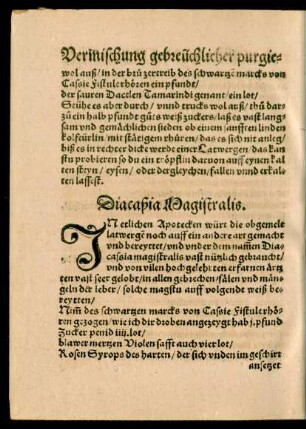 Vermischung gebreüchlicher purgie-
wol auß/ in der brü zertreib des schwartzē marcks von
Cassie Fistulerhörē ein pfundt/
der sauren Dactlen Tamarindi genant/ ein lot/
Seühe es aber durch/ vnnd trucks wol auß/ thṻ dar-
zū ein halb pfundt gūts weiß zuckers/ laß es vast lang-
sam vnd gemächlichen sieden ob einem sanfften linden
kolfeürlin/ mit stätigem rhüren/ das es sich nit anleg/
biß es in rechter dicke werde einer Latwergen/ das kan-
stu probieren so du ein tröpflin daruon auff eynen kal-
ten steyn/ eysen/ oder dergleychen/ fallen vnnd erkal-
ten lassest.
Diacaßia Magistralis.
IN etlichen Apotecken würt die obgemelt
latwergē noch auff ein andere art gemacht
vnd bereyttet/ vnd vnder dem nam̄en Dia-
cassia magistralis vast nützlich gebraucht/
vnd von vilen hochgelehrten erfarnen ärtz
ten vast seer gelobt/ in allen gebrechen/ fälen vnd män-
geln der leber/ solche magstu auff volgende weiß be-
reytten/
Nim̄ des schwartzen marcks von Cassie Fistulerhö-
ren gezogen/ wie ich dir droben angezeygt hab j. pfund
Zucker penid iiij. lot/
blawer mertzen Violen safft auch vier lot/
Rosen Syrops des harten/ der sich vnden im geschirr
ansetzet